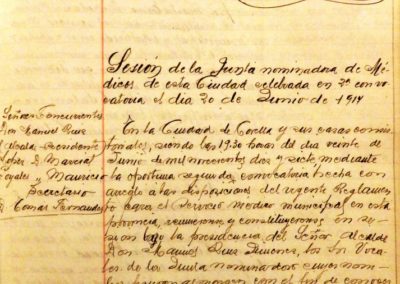 Sesión de la Junta nominadora de Mé-
dicos de esta Ciudad celebrada en 2ª convo-
catoria el dia 20 de Junio de 1917
Señores Concurrentes
Don Manuel Ruiz
Alcalde Presidente
Lopez D. Marcial
Mauricio
Secretario
D. Tomas Fernandez
En la Ciudad de Corella y sus casas consis-
toriales, siendo las 19,30 horas del dia veinte de
Junio de mil novecientos diez y siete, mediante
la oportuna segunda convocatoria hecha con
arreglo á las disposiciones del vigente Reglamen-
to para el servicio medico municipal en esta
provincia, reunieronse y constituyeronse en se-
sion bajo la presidencia del Señor Alcalde
Don Manuel Ruiz Jimenez, los Sres Voca-
les de la Junta nominadora cuyos nom-
bres al margen con el fin de conocer